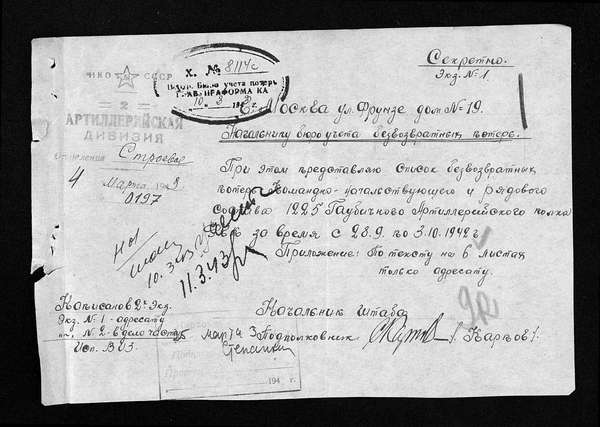 Секретно.
Экз. № 1.
НКО СССР
2
АРТИЛЛЕРИЙСКАЯ
ДИВИЗИЯ
Отделение Строевое
4 Марта 1943
0197
Х. № 8114с
Бюро учета потерь
КА
10 3 194
г. Москва ул. Фрунзе дом № 19.
Начальнику бюро учета безвозвратных потерь.
При этом представляю список безвозвратных
потерь командно-начальствующего и рядового
состава 1225 Гаубичного Артиллерийского полка
за время с 28.9 по 3.10.1942 г.
Приложение: По тексту на 6 листах
только адресату.
10.3.43
11.3.43
Начальник штаба
Подполковник
/Карпов/.
Написано в 2х Экз.
Экз. № 1 - адресату
"-" № 2 - в дело части
Исп. ВИЗ.
марта
194 г.